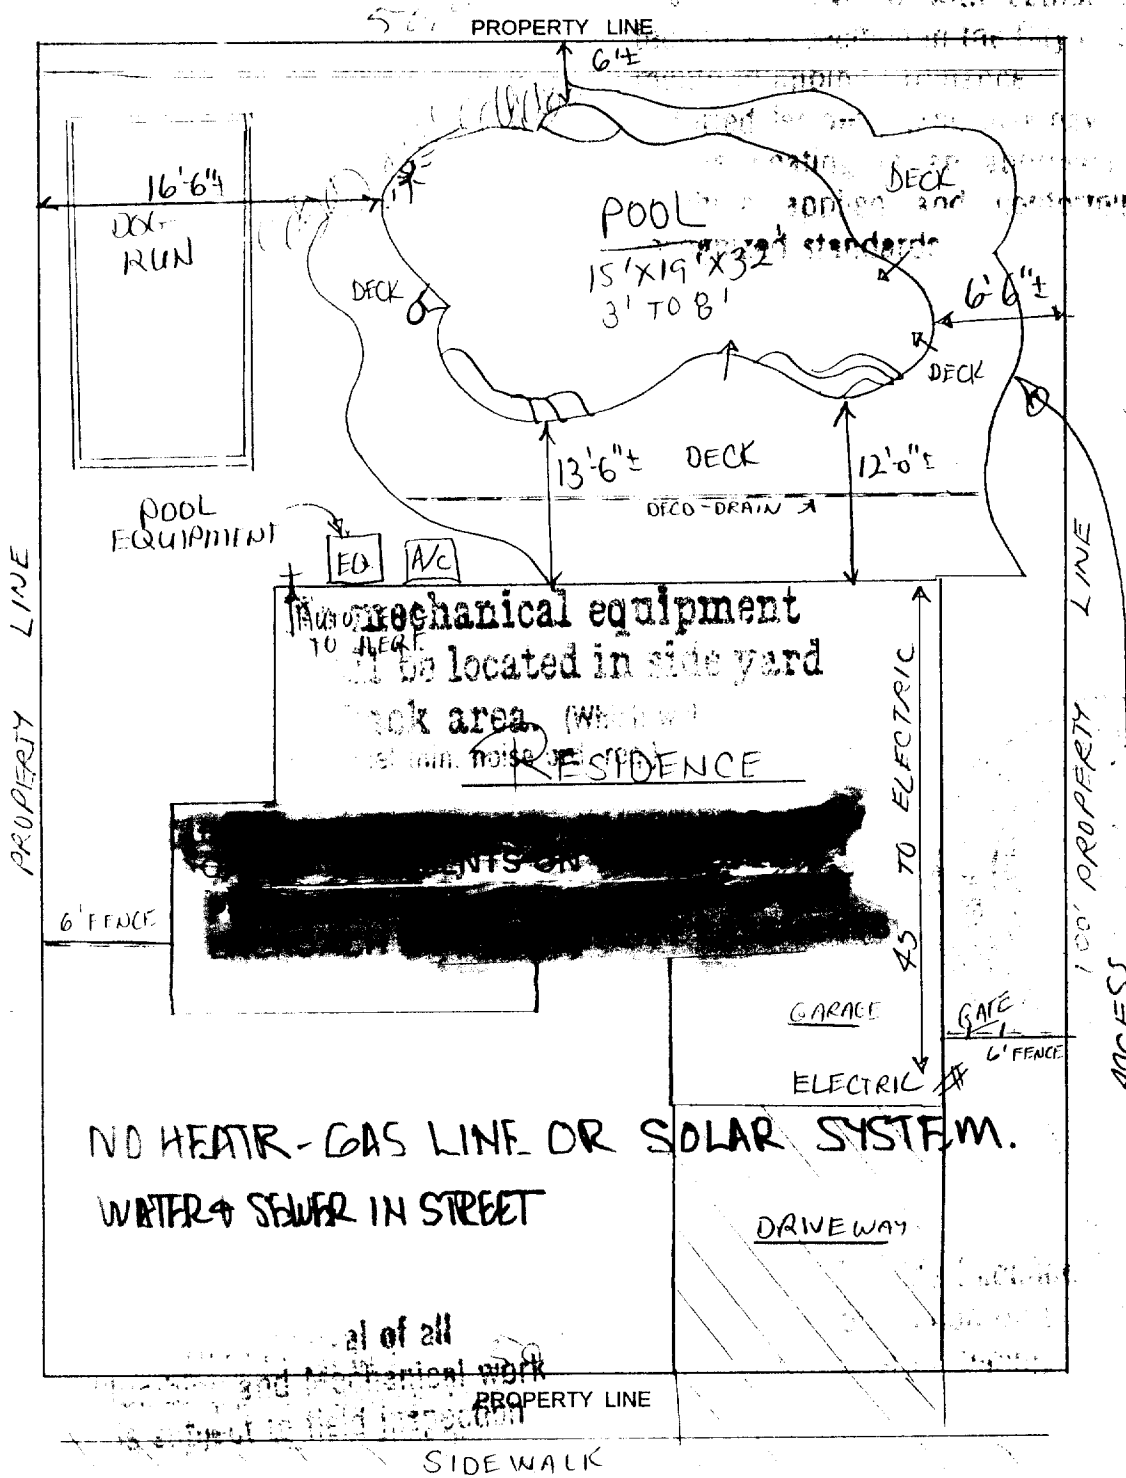 PROPERTY LINE
6'±
16'-6"±
DOG
RUN
DECK
POOL
15'X19'X32'
3' TO 8'
standards
DECK
6'-6"±
DECK
13'-6"±
DECK
12'-0"±
DECO-DRAIN
POOL
EQUIPMENT
EQ
A/C
mechanical equipment
TO HERE
be located in side yard
area.
noise
RESIDENCE
45 TO ELECTRIC
PROPERTY LINE
100' PROPERTY LINE
ACCESS
NTS ON
6' FENCE
GARAGE
GATE
6' FENCE
ELECTRIC
NO HEATR-GAS LINE OR SOLAR SYSTEM.
WATER & SEWER IN STREET
DRIVEWAY
al of all
and Mechanical work
PROPERTY LINE
is subject to field inspection
SIDEWALK